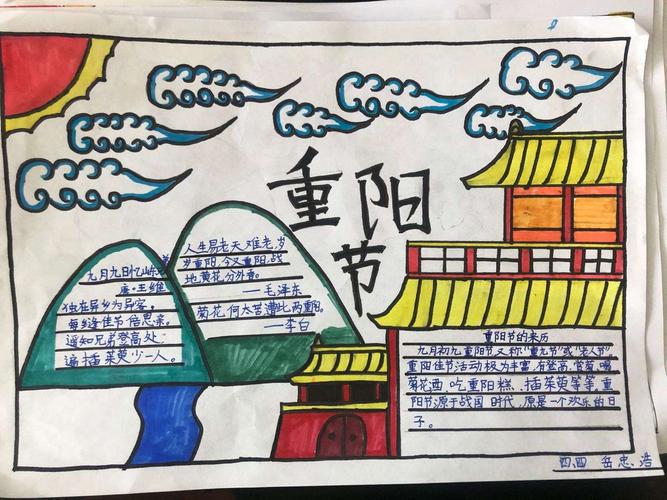 重阳节
九月九日忆山东
唐·王维
独在异乡为异客,
每逢佳节倍思亲。
遥知兄弟登高处,
遍插茱萸少一人。
人生易老天难老,岁
岁重阳,今又重阳,战
地黄花分外香。
——毛泽东
菊花何太苦遭此两重阳。
——李白
重阳节的来历
九月初九重阳节又称“重九节”或“老人节”
重阳佳节活动极为丰富,有登高、赏菊、喝
菊花酒、吃重阳糕、插茱萸等等,重
阳节源于战国时代,原是一个欢乐的日
子。
四、四 岳忠浩